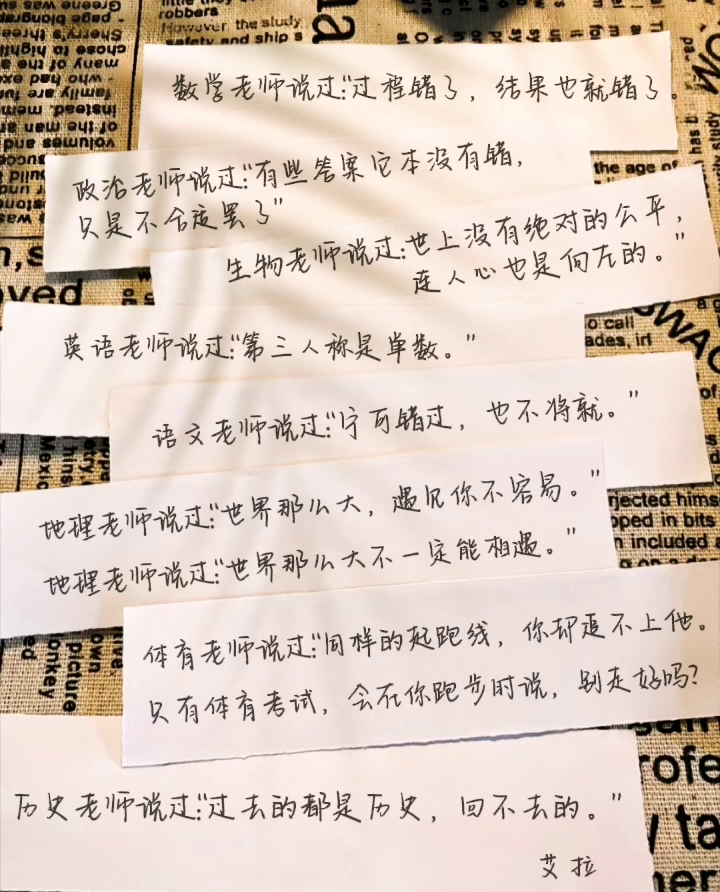 robbers
However the study
safety and ship s
数学老师说过:“过程错了，结果也就错了。
政治老师说过:“有些答案它本没有错，
只是不合适罢了”
生物老师说过:世上没有绝对的公平，
连人心也是向左的。”
英语老师说过:“第三人称是单数。”
语文老师说过:“宁可错过，也不将就。”
地理老师说过:“世界那么大，遇见你不容易。”
地理老师说过:“世界那么大不一定能相遇。”
体育老师说过:“同样的起跑线，你却追不上他。
只有体育考试，会在你跑步时说，别走好吗?
历史老师说过:“过去的都是历史，回不去的。”
艾拉
the age of
jected hims
pped in bits
n included
picture